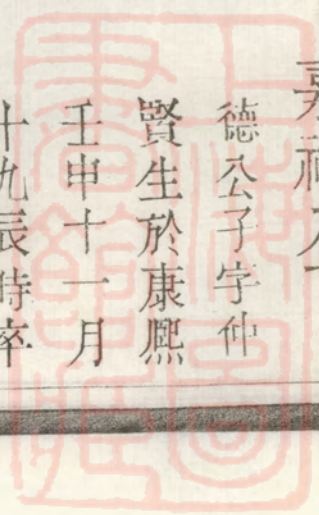 德公子字仲
賢生於康熙
壬申十一月
十九辰時卒